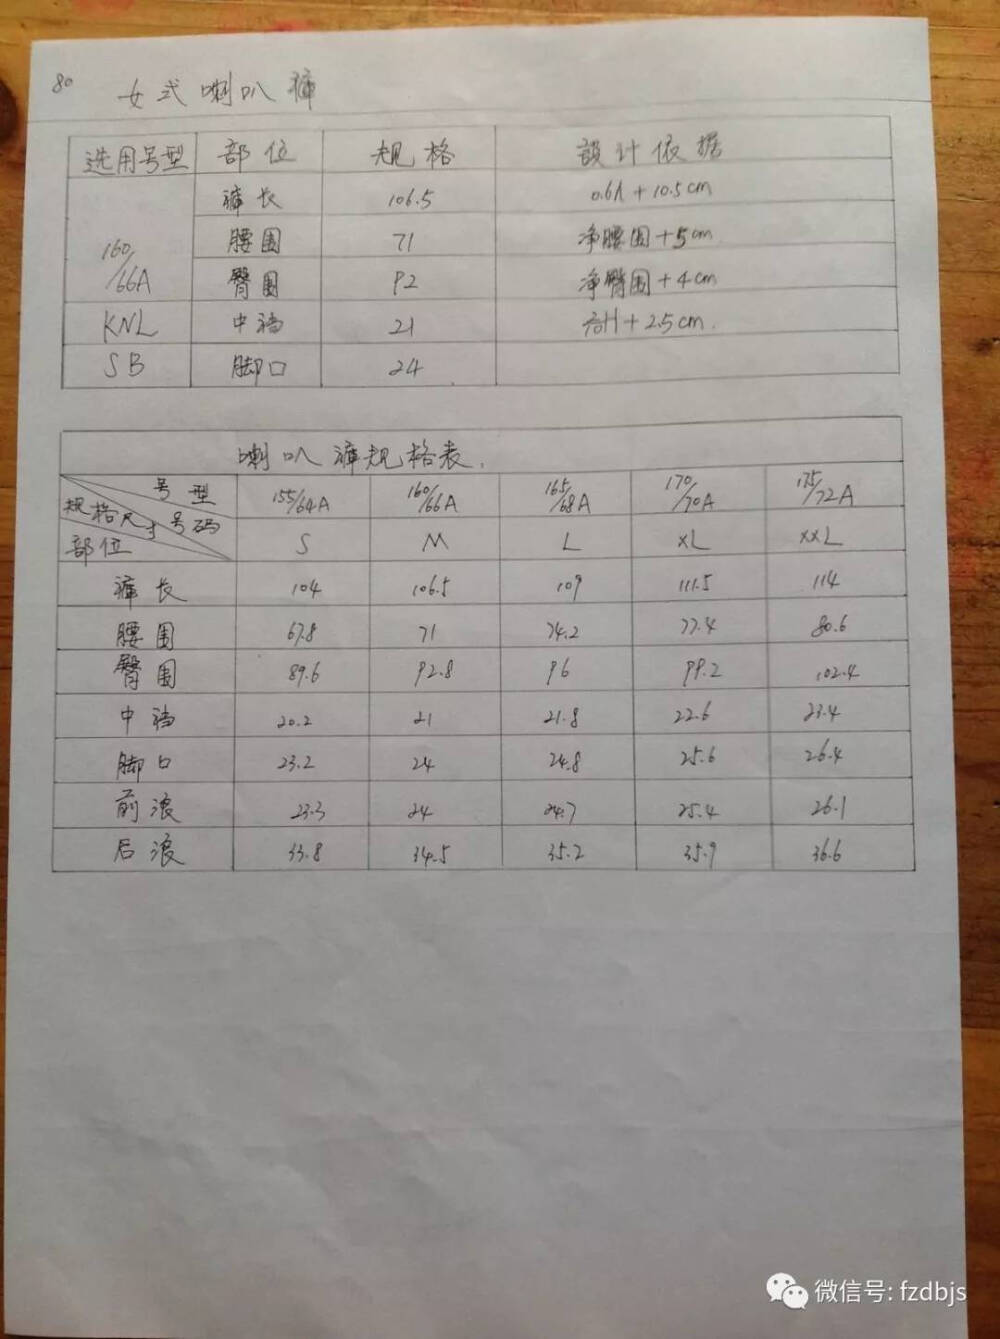 80
女式喇叭裤
选用号型 部位 规格 設计依据
160/66A 裤长 106.5 0.6h + 10.5cm
腰围 71 净腰围 + 5cm
臀围 92 净臀围 + 4cm
KNL 中裆 21 H + 2.5cm.
SB 脚口 24
喇叭裤规格表.
号型 155/64A 160/66A 165/68A 170/70A 175/72A
规格尺寸 号码 S M L XL XXL
部位
裤长 104 106.5 109 111.5 114
腰围 67.8 71 74.2 77.4 80.6
臀围 89.6 92.8 96 99.2 102.4
中裆 20.2 21 21.8 22.6 23.4
脚口 23.2 24 24.8 25.6 26.4
前浪 23.3 24 24.7 25.4 26.1
后浪 33.8 34.5 35.2 35.9 36.6
微信号: fzdbjs